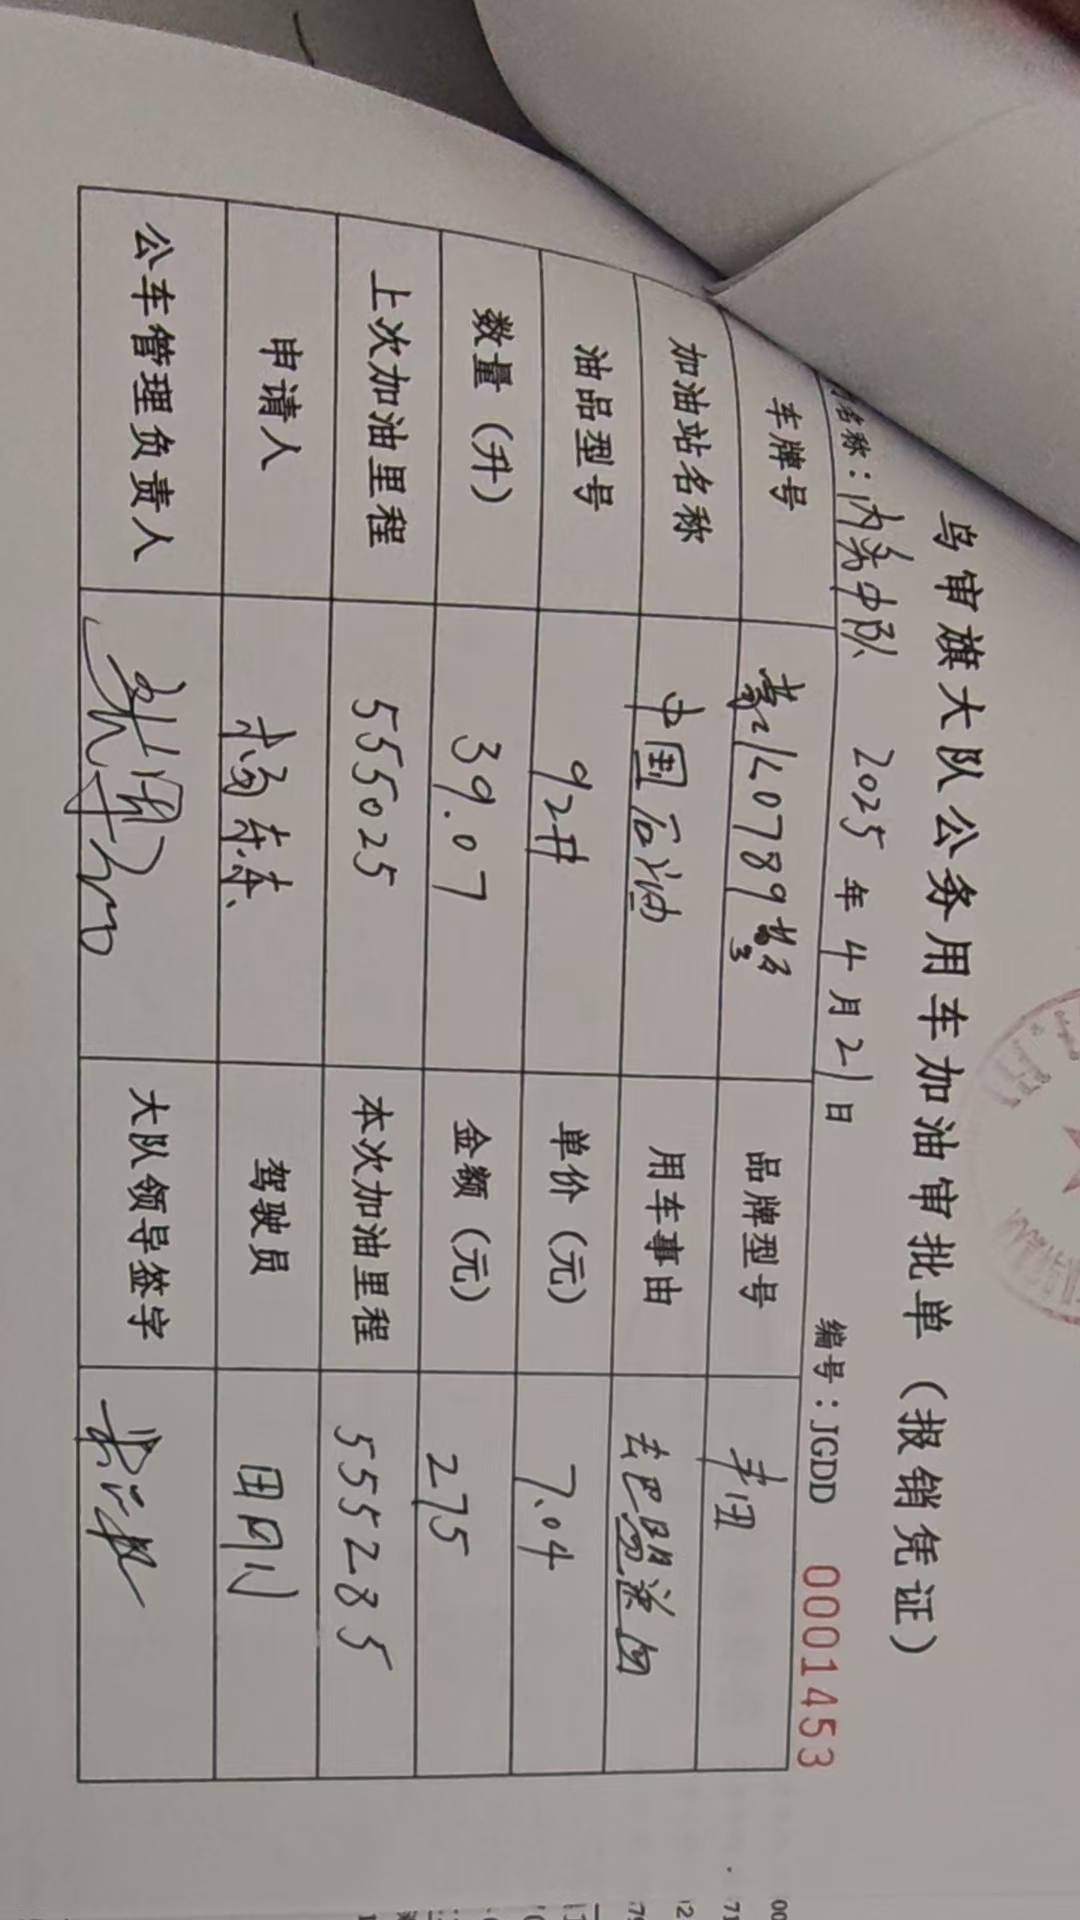 乌审旗大队公务用车加油审批单（报销凭证）
名称：内务中队 2025年4月21日 编号：JGDD 0001453
车牌号 蒙K0789警 品牌型号 丰田
加油站名称 中国石油 用车事由 去巴图湾
油品型号 92# 单价（元） 7.04
数量（升） 39.07 金额（元） 275
上次加油里程 555025 本次加油里程 555285
申请人 驾驶员 田刚
公车管理负责人 大队领导签字